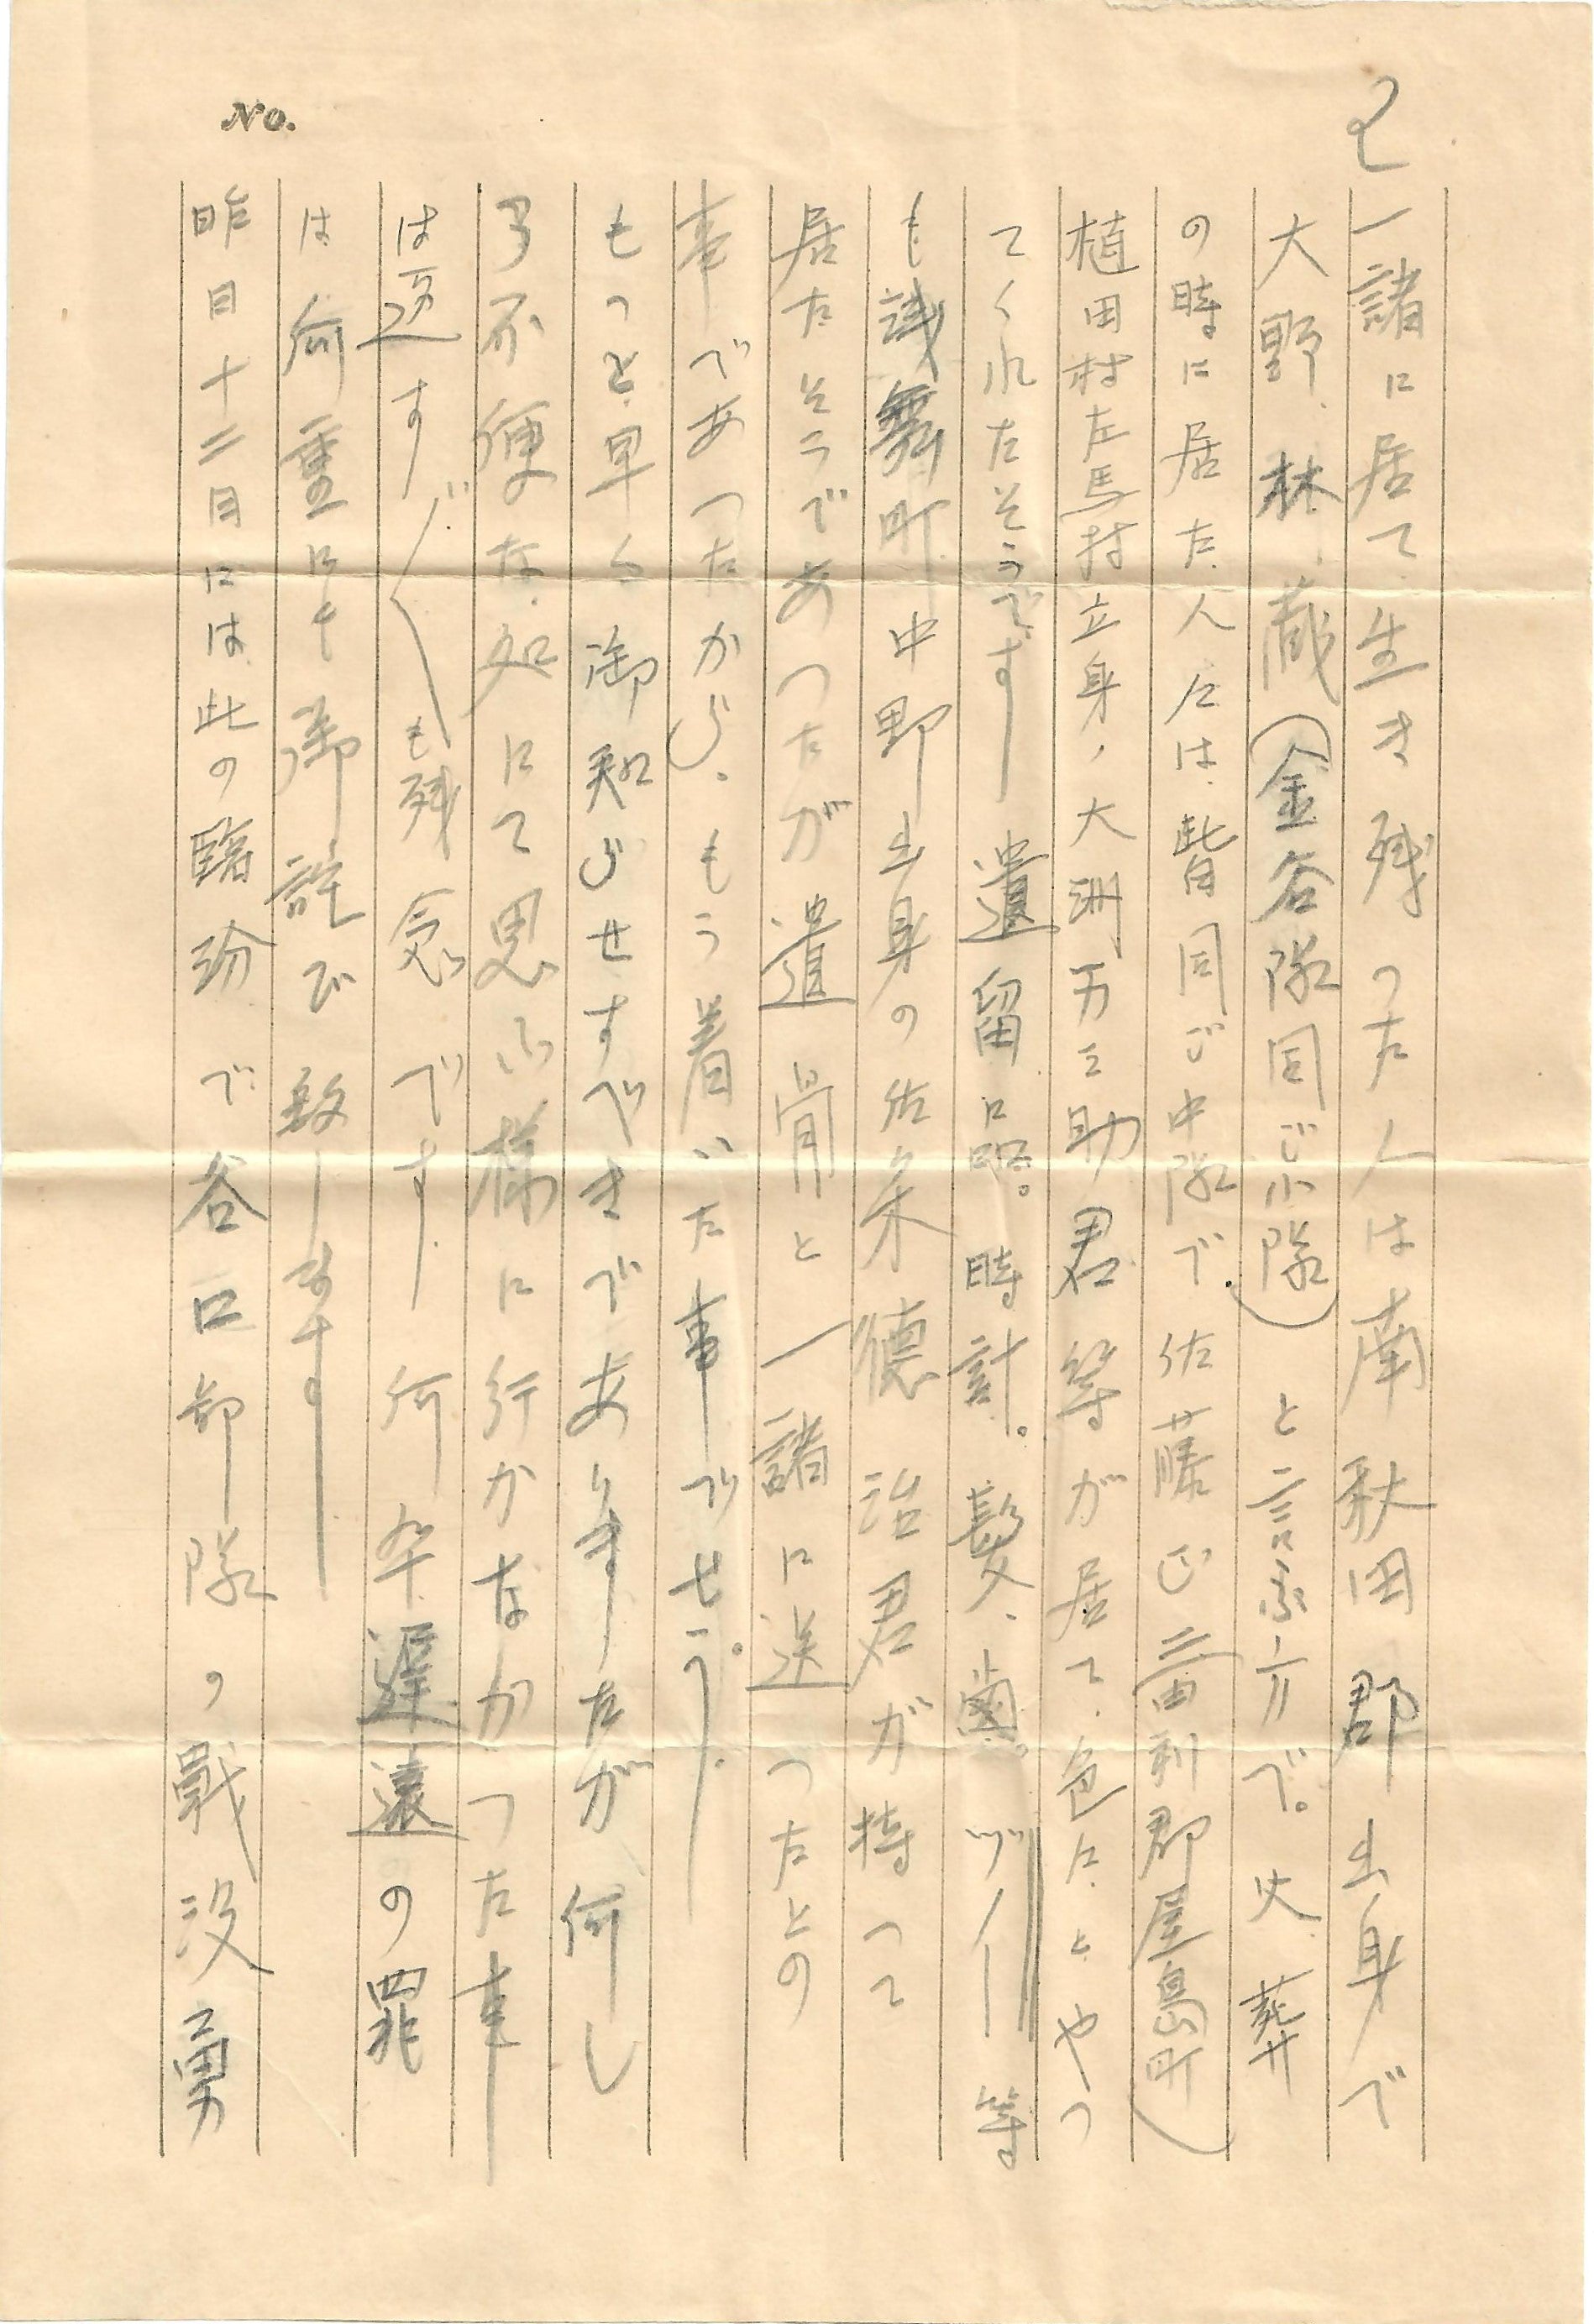 2
No.
一諸に居て生き残った人は南秋田郡出身で
大野林蔵(金谷隊同じ小隊)と言ふ方で。火葬
の時に居た人々は、皆同じ中隊で、佐藤正三(由利郡屋島町)
植田村左馬村立身、大洲万之助君等が居て、色々とやつ
てくれたそうです 遺留品。時計。髪、歯。 等
も浅舞町中野出身の佐々木徳治君が持って
居たそうであつたが遺骨と一諸に送つたとの
事であつたから、もう着いた事でせう。
もっと早く御知らせすべきでありましたが何し
ろ不便な処にて思ふ様に行かなかつた事
は返す〲も残念です 何卒遅遠の罪
は何重にも御詫び致します
昨日十二日には此の臨汾で谷口部隊の戦没勇